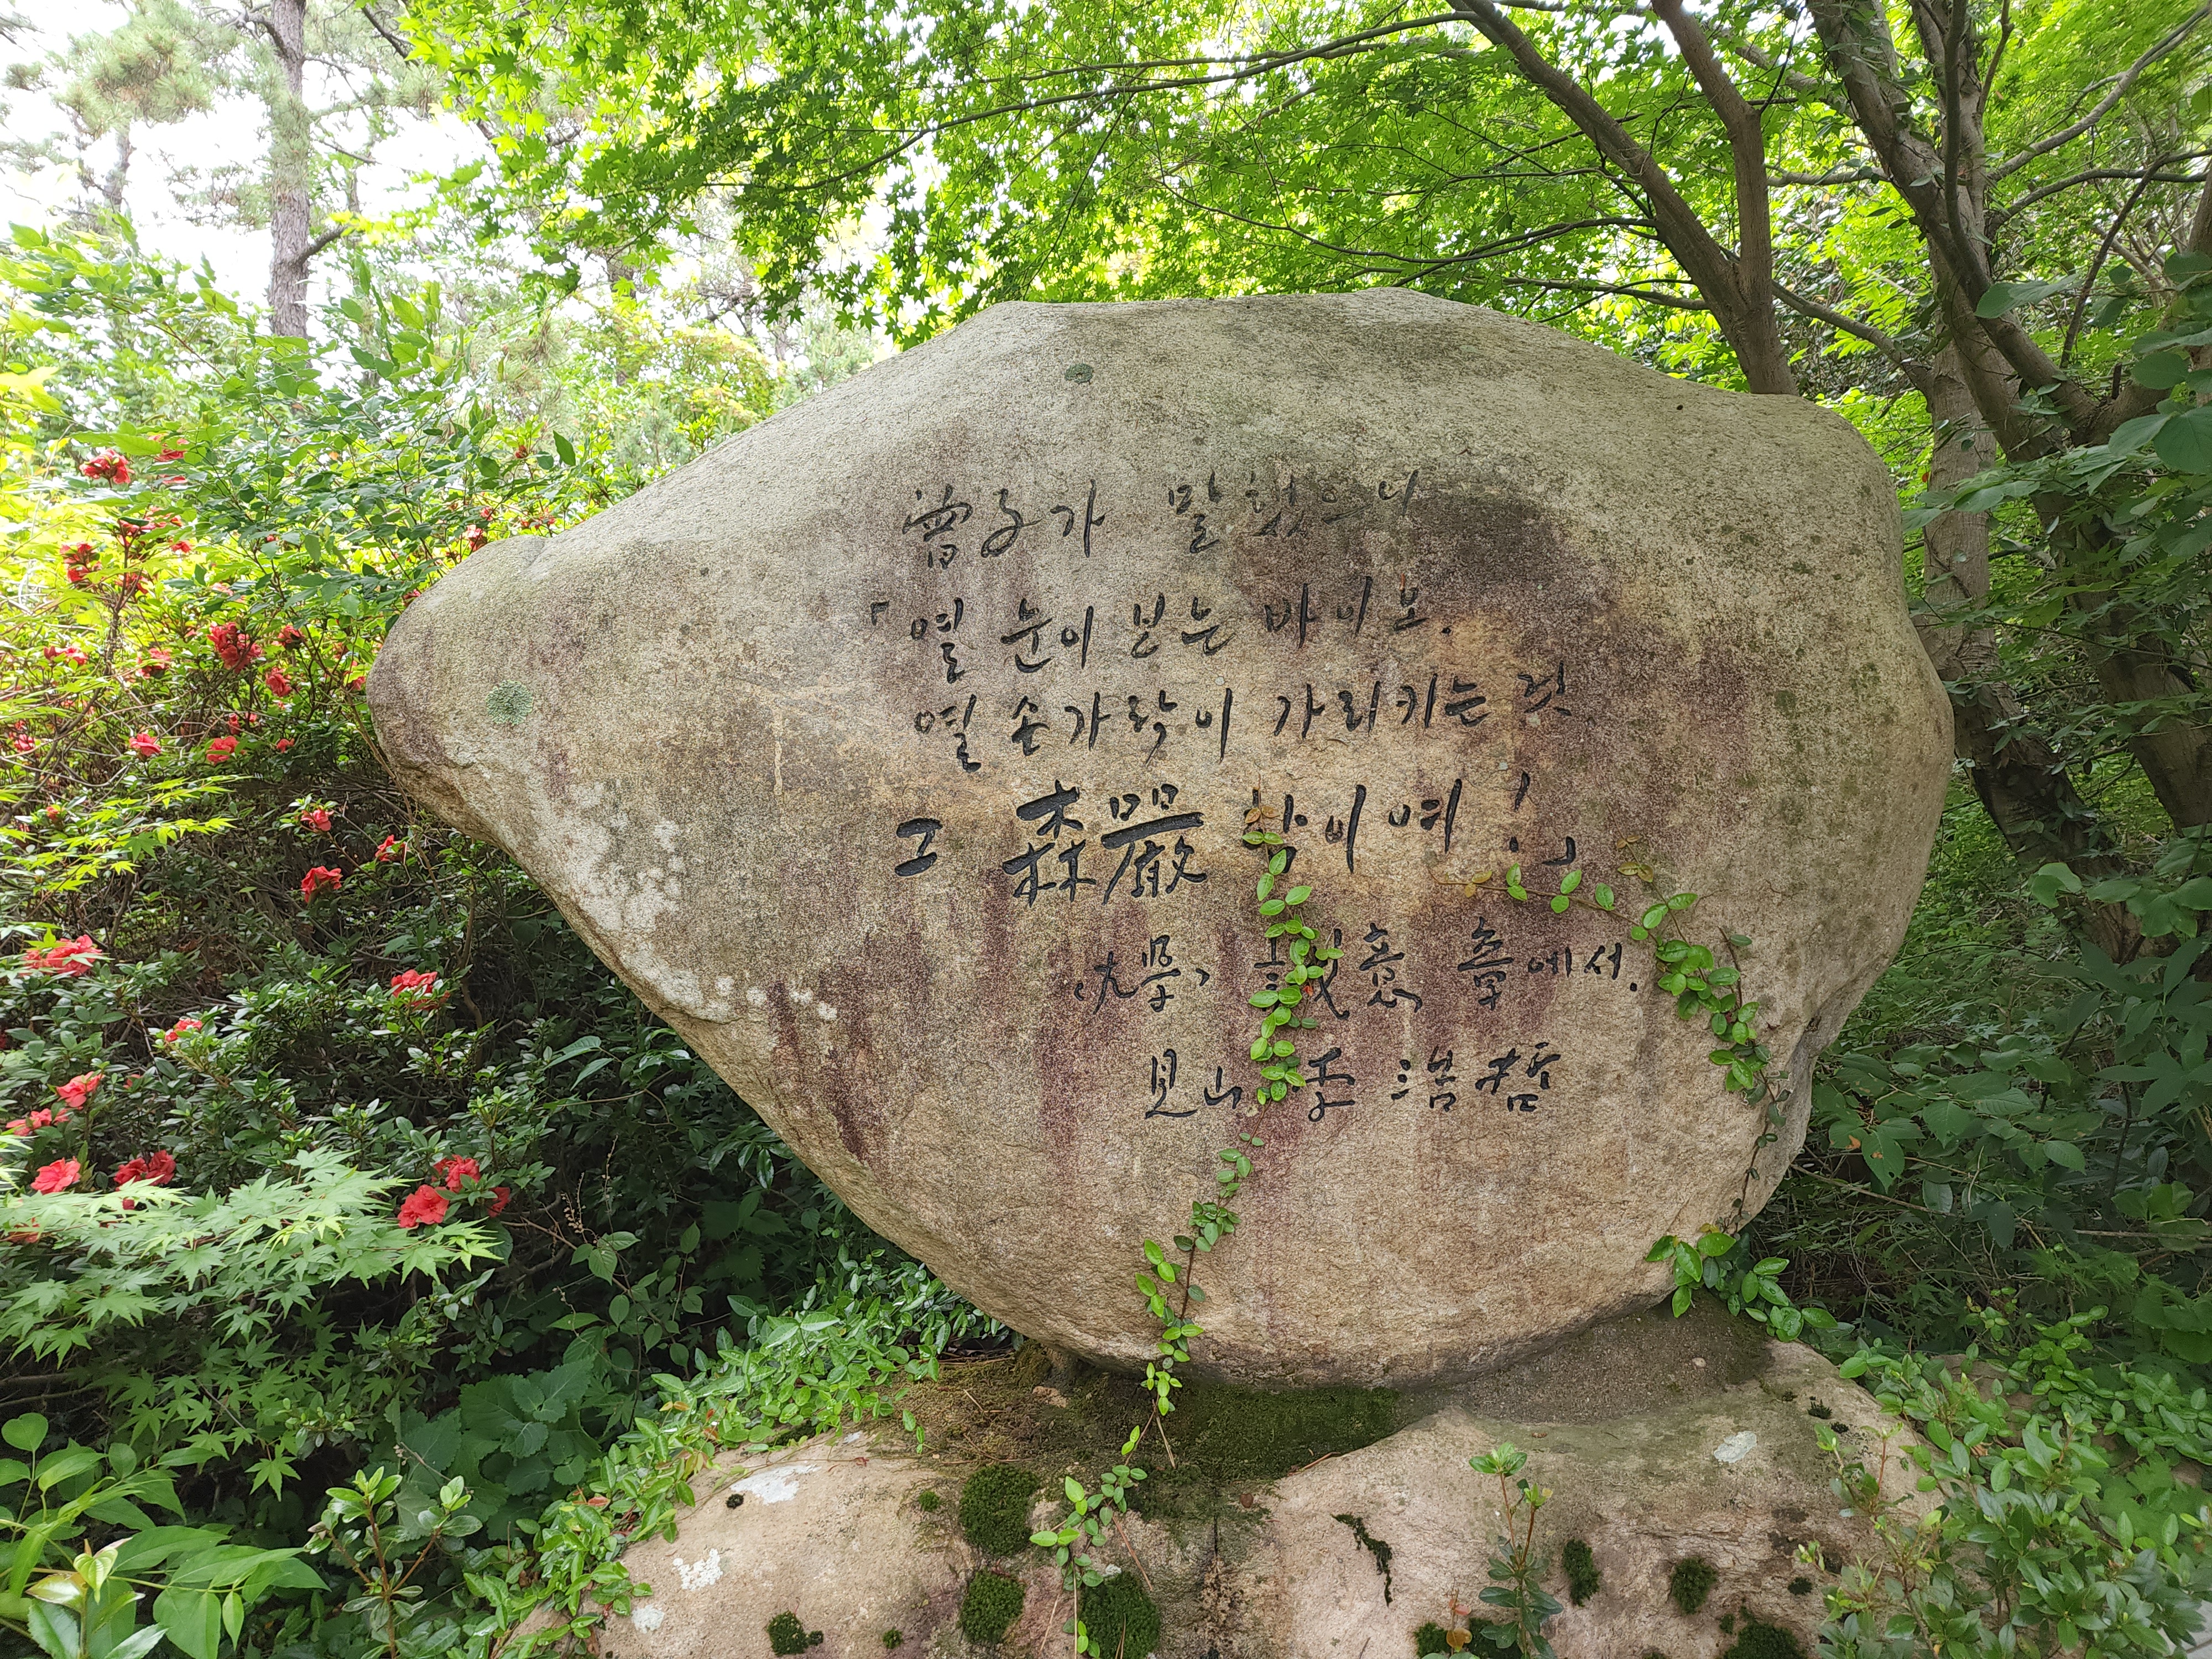 曾子가 말했으니
「열 눈이 보는 바이오.
열 손가락이 가리키는 것
그 森嚴함이여!」
〈大學〉 誠意 章에서.
見山 李浩哲